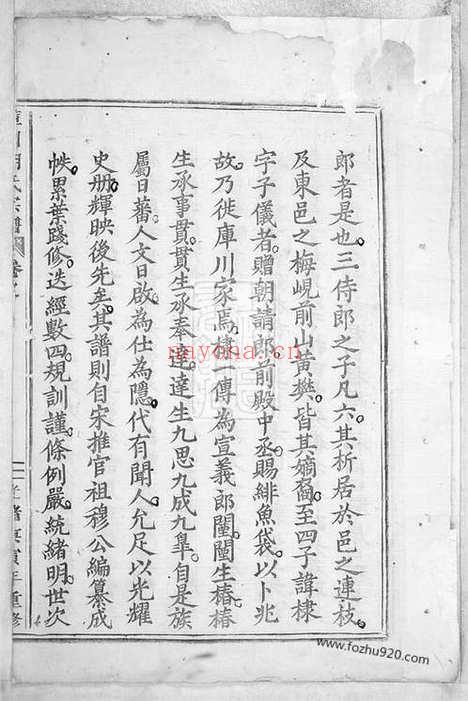 郎者是也三侍郎之子凡六其析居於邑之連枝
及東邑之梅峴前山黄樊皆其嫡裔至四子諱棣
字子儀者贈朝請郎前殿中丞賜緋魚袋以卜兆
故乃徙庫川家焉棣一傳為宣義郎闓闓生椿椿
生承事貫貫生承奉逹逹生九思九成九臯自是族
屬日蕃人文日啟為仕為隱代有聞人允足以光耀
史册輝映後先矣其譜則自宋推官祖穆公編纂成
帙累葉踐修迭經數四規訓謹條例嚴統緒明世次
川胡氏宗譜
卷之
上
緒庚寅年重修
nayona.cn
www.fozhu920.com